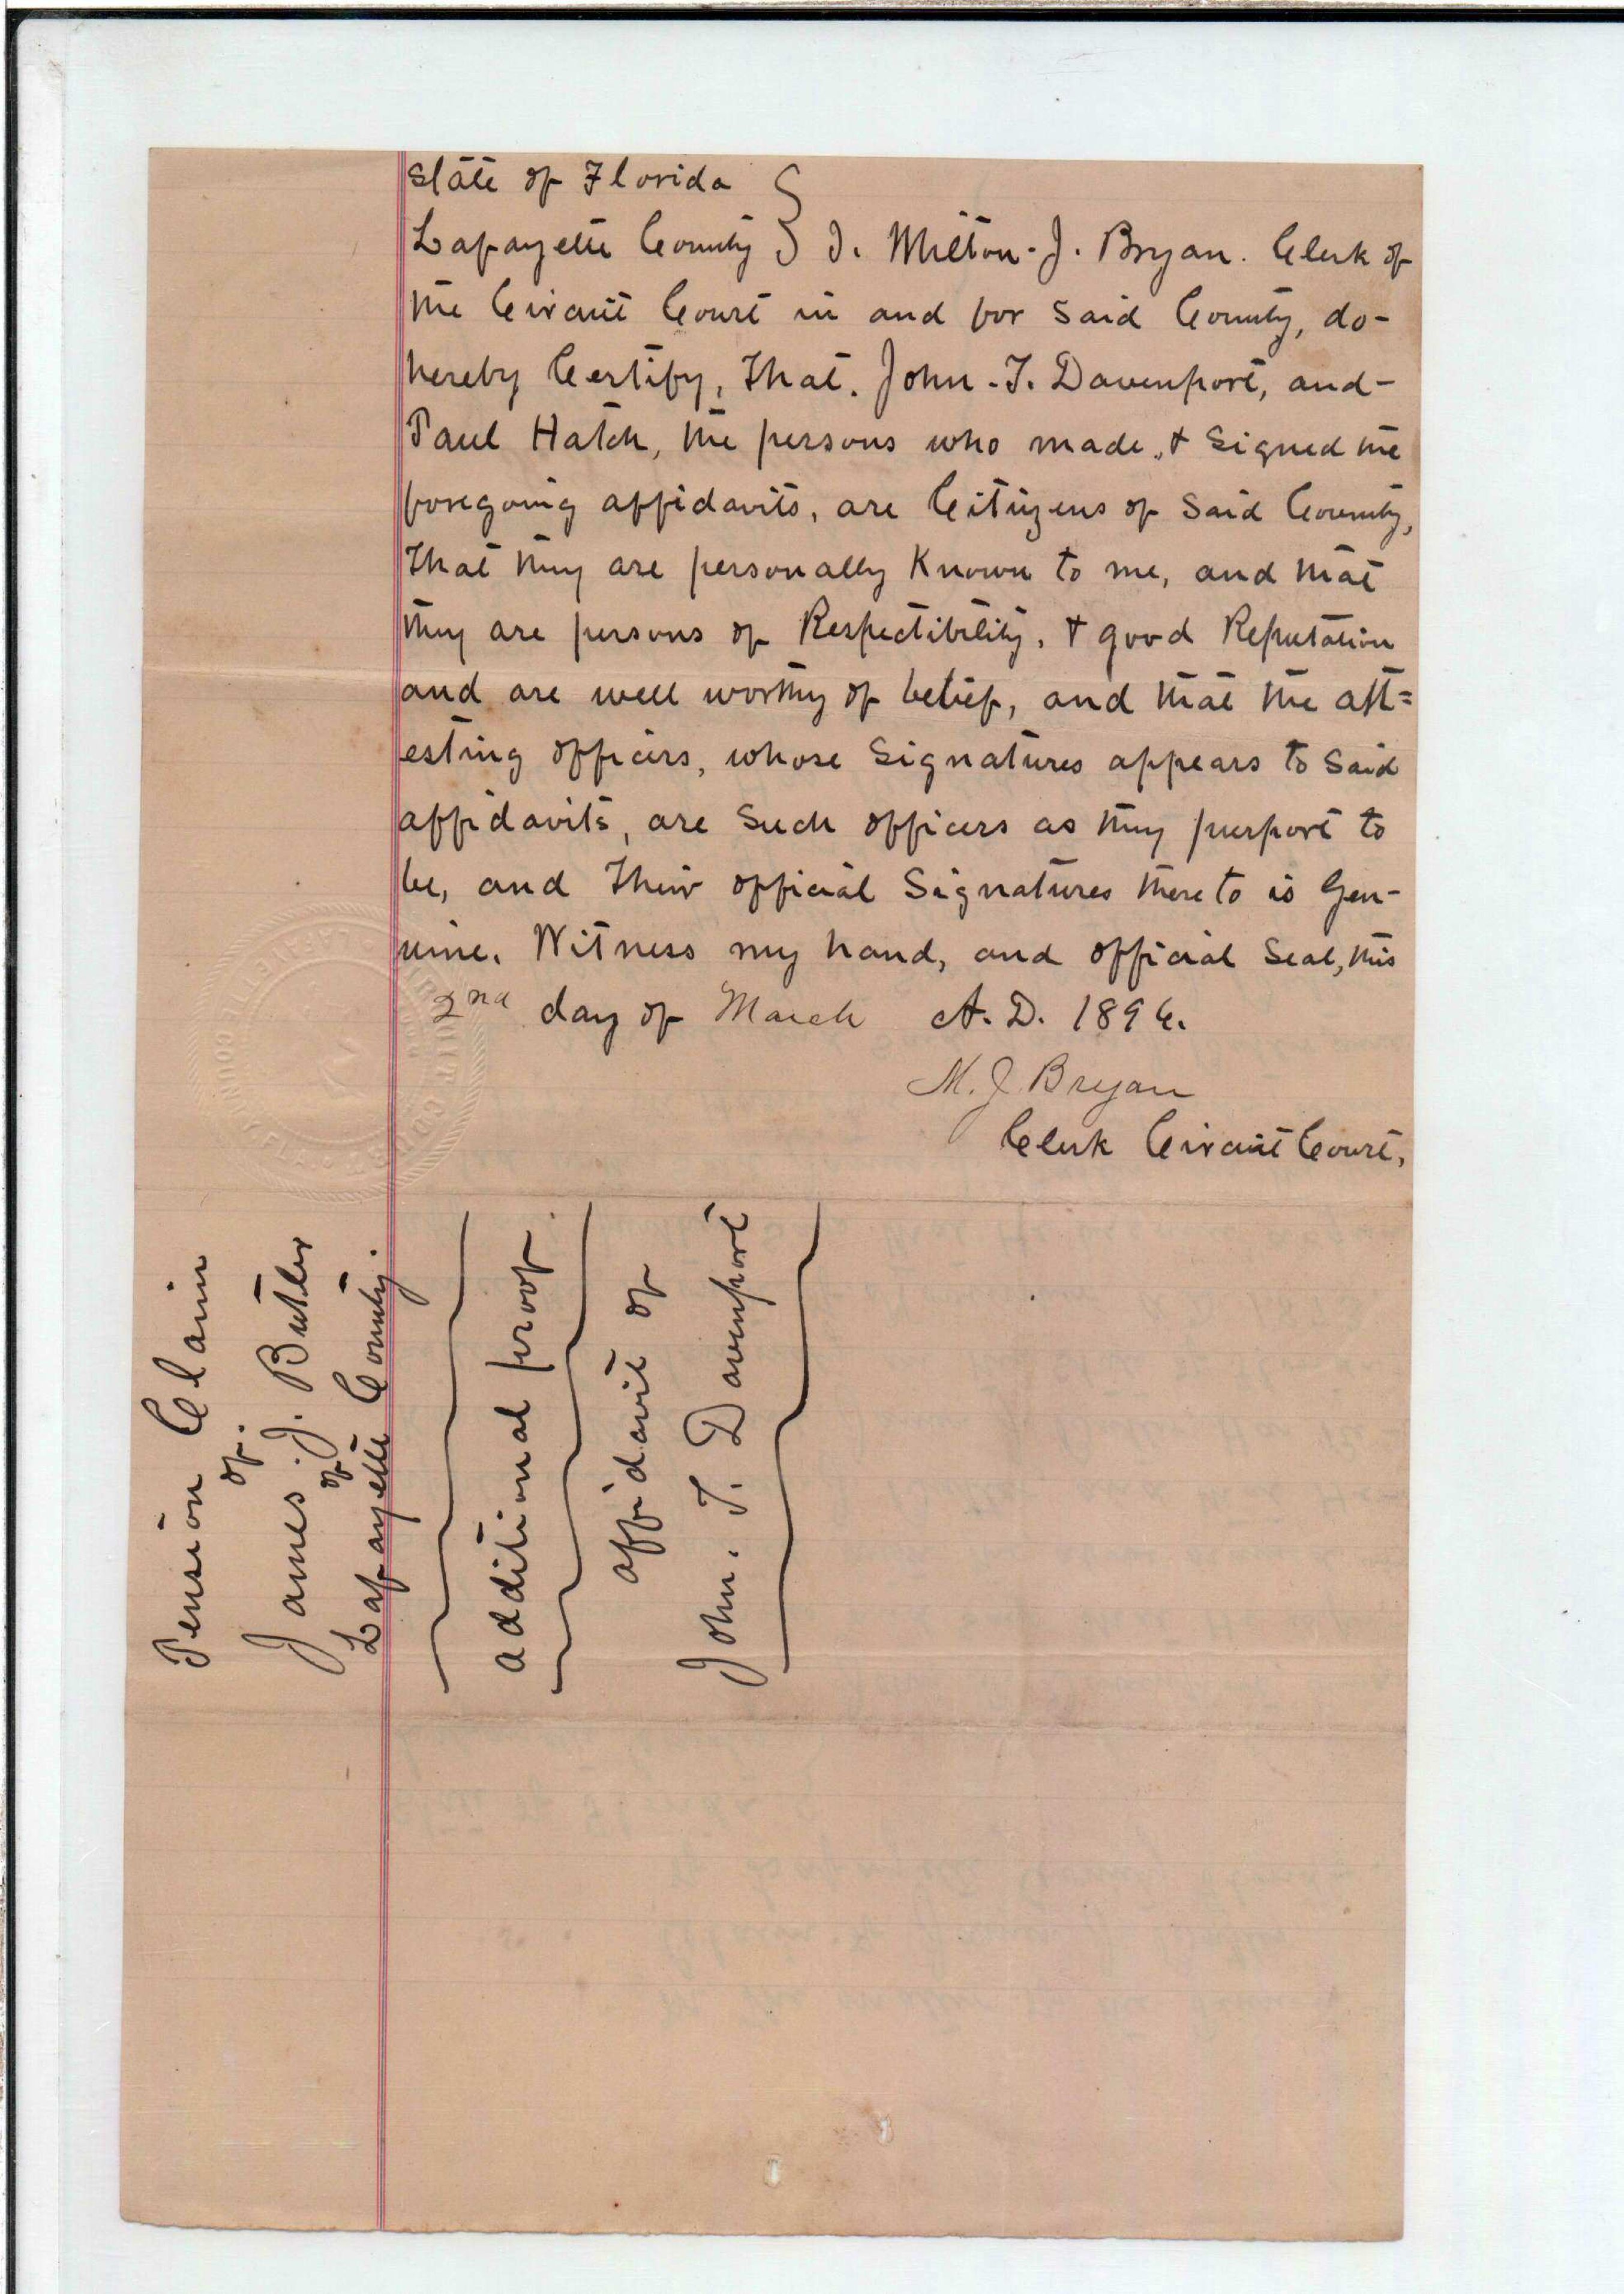 State of Florida }
Lafayette County } I. Milton-J. Bryan. Clerk of
the Circuit Court in and for said County, do-
hereby Certify, That. John-T. Davenport, and-
Paul Hatch, the persons who made, & signed the
foregoing affidavits, are Citizens of said County,
That they are personally Known to me, and that
they are persons of Respectibility, & good Reputation
and are well worthy of belief, and that the att=
esting officers, whose signatures appears to said
affidavits, are such officers as they purport to
be, and their official signatures there to is Gen-
uine. Witness my hand, and official Seal, this
2nd day of March A.D. 1896.
M. J Bryan
Clerk Circuit Court,
Pension Claim
of.
James. J. Butler
of
Lafayette County.
additional proof
affidavit of
John. T. Davenport